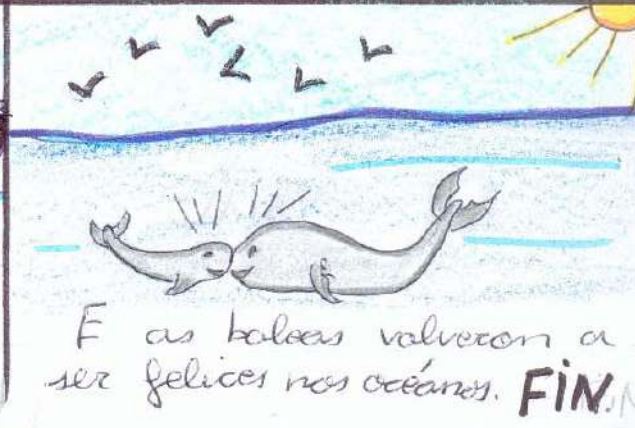 E as baleas volveron a
ser felices nos océanos. FIN.